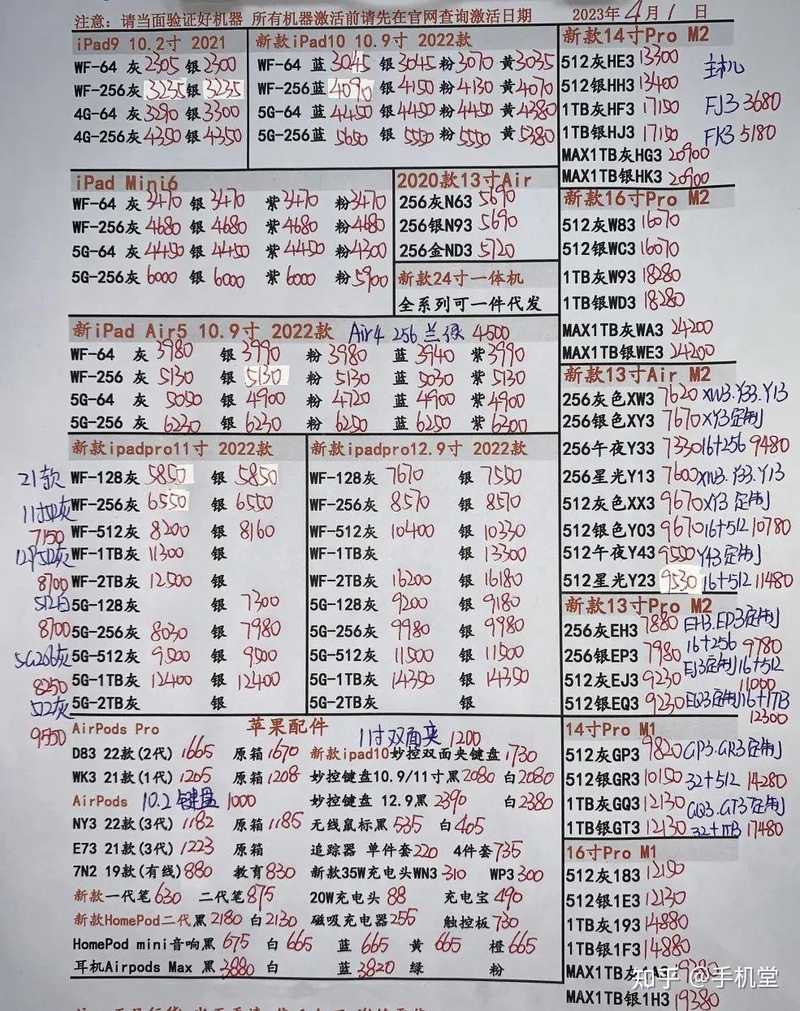 注意: 请当面验证好机器 所有机器激活前请先在官网查询激活日期 2023年4月1日
iPad9 10.2寸 2021
WF-64 灰2305 银2300
WF-256灰3235银3235
4G-64 灰3290 银3300
4G-256灰4350 银4350
新款iPad10 10.9寸 2022款
WF-64 蓝 3045 银3045粉3070黄3035
WF-256蓝 4090 银4150粉4130黄4070
5G-64 蓝 4450 银4450粉4450黄4380
5G-256蓝 5650 银5550粉5550黄5380
iPad Mini6
WF-64 灰3470 银3470 紫3470 粉3470
WF-256灰4680 银4680 紫4680 粉4680
5G-64 灰4450 银4450 紫4450 粉4300
5G-256灰6000 银6000 紫6000 粉5900
2020款13寸Air
256灰N63 5690
256银N93 5690
256金ND3 5720
新款24寸一体机
全系列可一件代发
新iPad Air5 10.9寸 2022款 Air4 256 兰 绿 4500
WF-64 灰 3980 银 3990 粉 3980 蓝 3940 紫3990
WF-256 灰 5130 银 5130 粉 5130 蓝 5030 紫5130
5G-64 灰 5050 银 4900 粉 4720 蓝 4900 紫4900
5G-256 灰 6230 银 6230 粉 6250 蓝 6250 紫6300
新款ipadpro11寸 2022款
WF-128灰 5850 银 5850
WF-256灰 6550 银 6550
WF-512灰 8200 银 8160
WF-1TB灰 11300 银
WF-2TB灰 12500 银
5G-128灰 银 7300
5G-256灰 8030 银 7980
5G-512灰 9500 银 9500
5G-1TB灰 12400 银 12400
5G-2TB灰 银
21款
11寸
7150
8700
512白
8700
8250
512灰
9550
新款ipadpro12.9寸 2022款
WF-128灰 7670 银 7550
WF-256灰 8570 银 8570
WF-512灰 10400 银 10330
WF-1TB灰 银 13300
WF-2TB灰 16200 银 16180
5G-128灰 9200 银 9180
5G-256灰 9980 银 9980
5G-512灰 11500 银 11500
5G-1TB灰 14350 银 14350
5G-2TB灰 银
苹果配件
AirPods Pro 11寸双面夹 1200
D83 22款(2代) 1665 原箱1670 新款ipad10妙控双面夹键盘1730
WK3 21款(1代) 1205 原箱1208 妙控键盘10.9/11寸黑2080 白2080
AirPods 10.2键盘 1000 妙控键盘 12.9黑 2390 白2380
NY3 22款(3代) 1182 原箱1185 无线鼠标黑535 白405
E73 21款(3代) 1223 原箱 追踪器 单件套220 4件套735
7N2 19款(有线)880 教育830 新款35W充电头WN3 310 WP3 300
新款一代笔630 二代笔875 20W充电头 88 充电宝490
新款HomePod二代黑2180 白2130 磁吸充电器255 触控板730
HomePod mini音响黑675 白665 蓝 665 黄 665 橙665
耳机Airpods Max 黑3880 白 蓝 3820 绿 粉
新款14寸Pro M2
512灰HE3 13300
512银HH3 13400
1TB灰HF3 17150
1TB银HJ3 17150
MAX1TB灰HG3 20900
MAX1TB银HK3 20900
主机
FJ3 3680
FK3 5180
新款16寸Pro M2
512灰W83 16070
512银WC3 16070
1TB灰W93 18280
1TB银WD3 18280
MAX1TB灰WA3 24200
MAX1TB银WE3 24200
新款13寸Air M2
256灰色XW3 7620 XW3.Y33.Y13
256银色XY3 7670 XY3定制
256午夜Y33 7330 16+256 9480
256星光Y13 7600 XW3.Y33.Y13
512灰色XX3 9670 XY3 定制
512银色Y03 9670 16+512 10780
512午夜Y43 9550 Y43定制
512星光Y23 9530 16+512 11480
新款13寸Pro M2
256灰EH3 7880 EH3.EP3定制
256银EP3 7980 16+256 9780
512灰EJ3 9230 EJ3定制16+512 11000
512银EQ3 9230 EQ3定制16+1TB 12300
14寸Pro M1
512灰GP3 9820 GP3.GR3定制
512银GR3 10150 32+512 14280
1TB灰GQ3 12130 GQ3.GT3定制
1TB银GT3 12130 32+1TB 17480
16寸Pro M1
512灰183 12150
512银1E3 12130
1TB灰193 14880
1TB银1F3 14880
MAX1TB灰
MAX1TB银1H3 19380
知乎 @手机堂